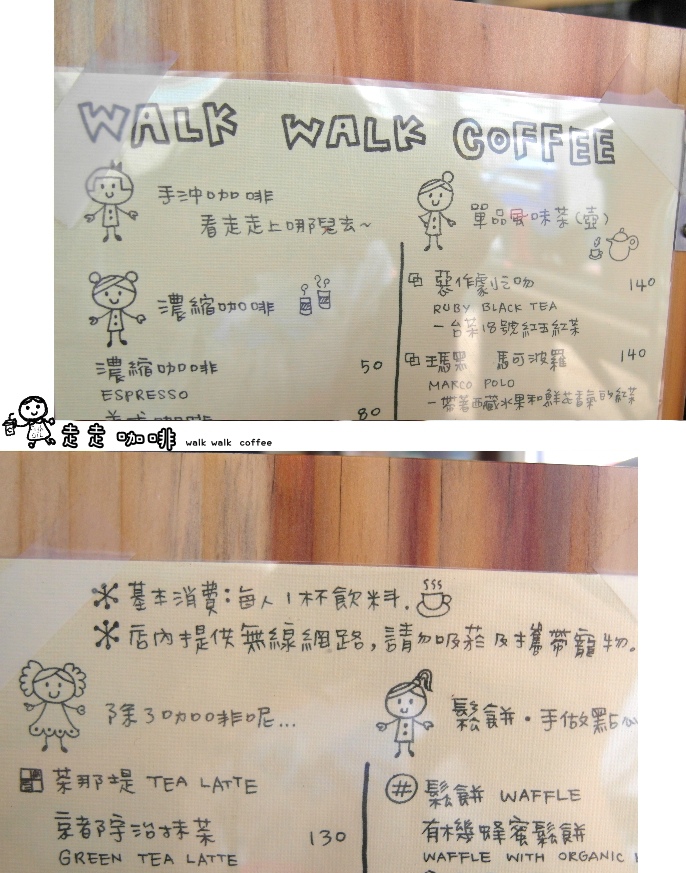 WALK WALK COFFEE
手沖咖啡
看走走上哪兒去~
濃縮咖啡
濃縮咖啡 50
ESPRESSO
美式咖啡 80
單品風味茶(壺)
惡作劇之吻 140
RUBY BLACK TEA
一台茶18號紅玉紅茶
瑪黑 馬可波羅 140
MARCO POLO
一帶著西藏水果和鮮花香氣的紅茶
走走咖啡 walk walk coffee
基本消費:每人1杯飲料.
店內提供無線網路,請勿吸菸及攜帶寵物。
除了咖啡呢...
茶那堤 TEA LATTE
京都宇治抹茶 130
GREEN TEA LATTE
鬆餅·手做點心
# 鬆餅 WAFFLE
有機蜂蜜鬆餅
WAFFLE WITH ORGANIC